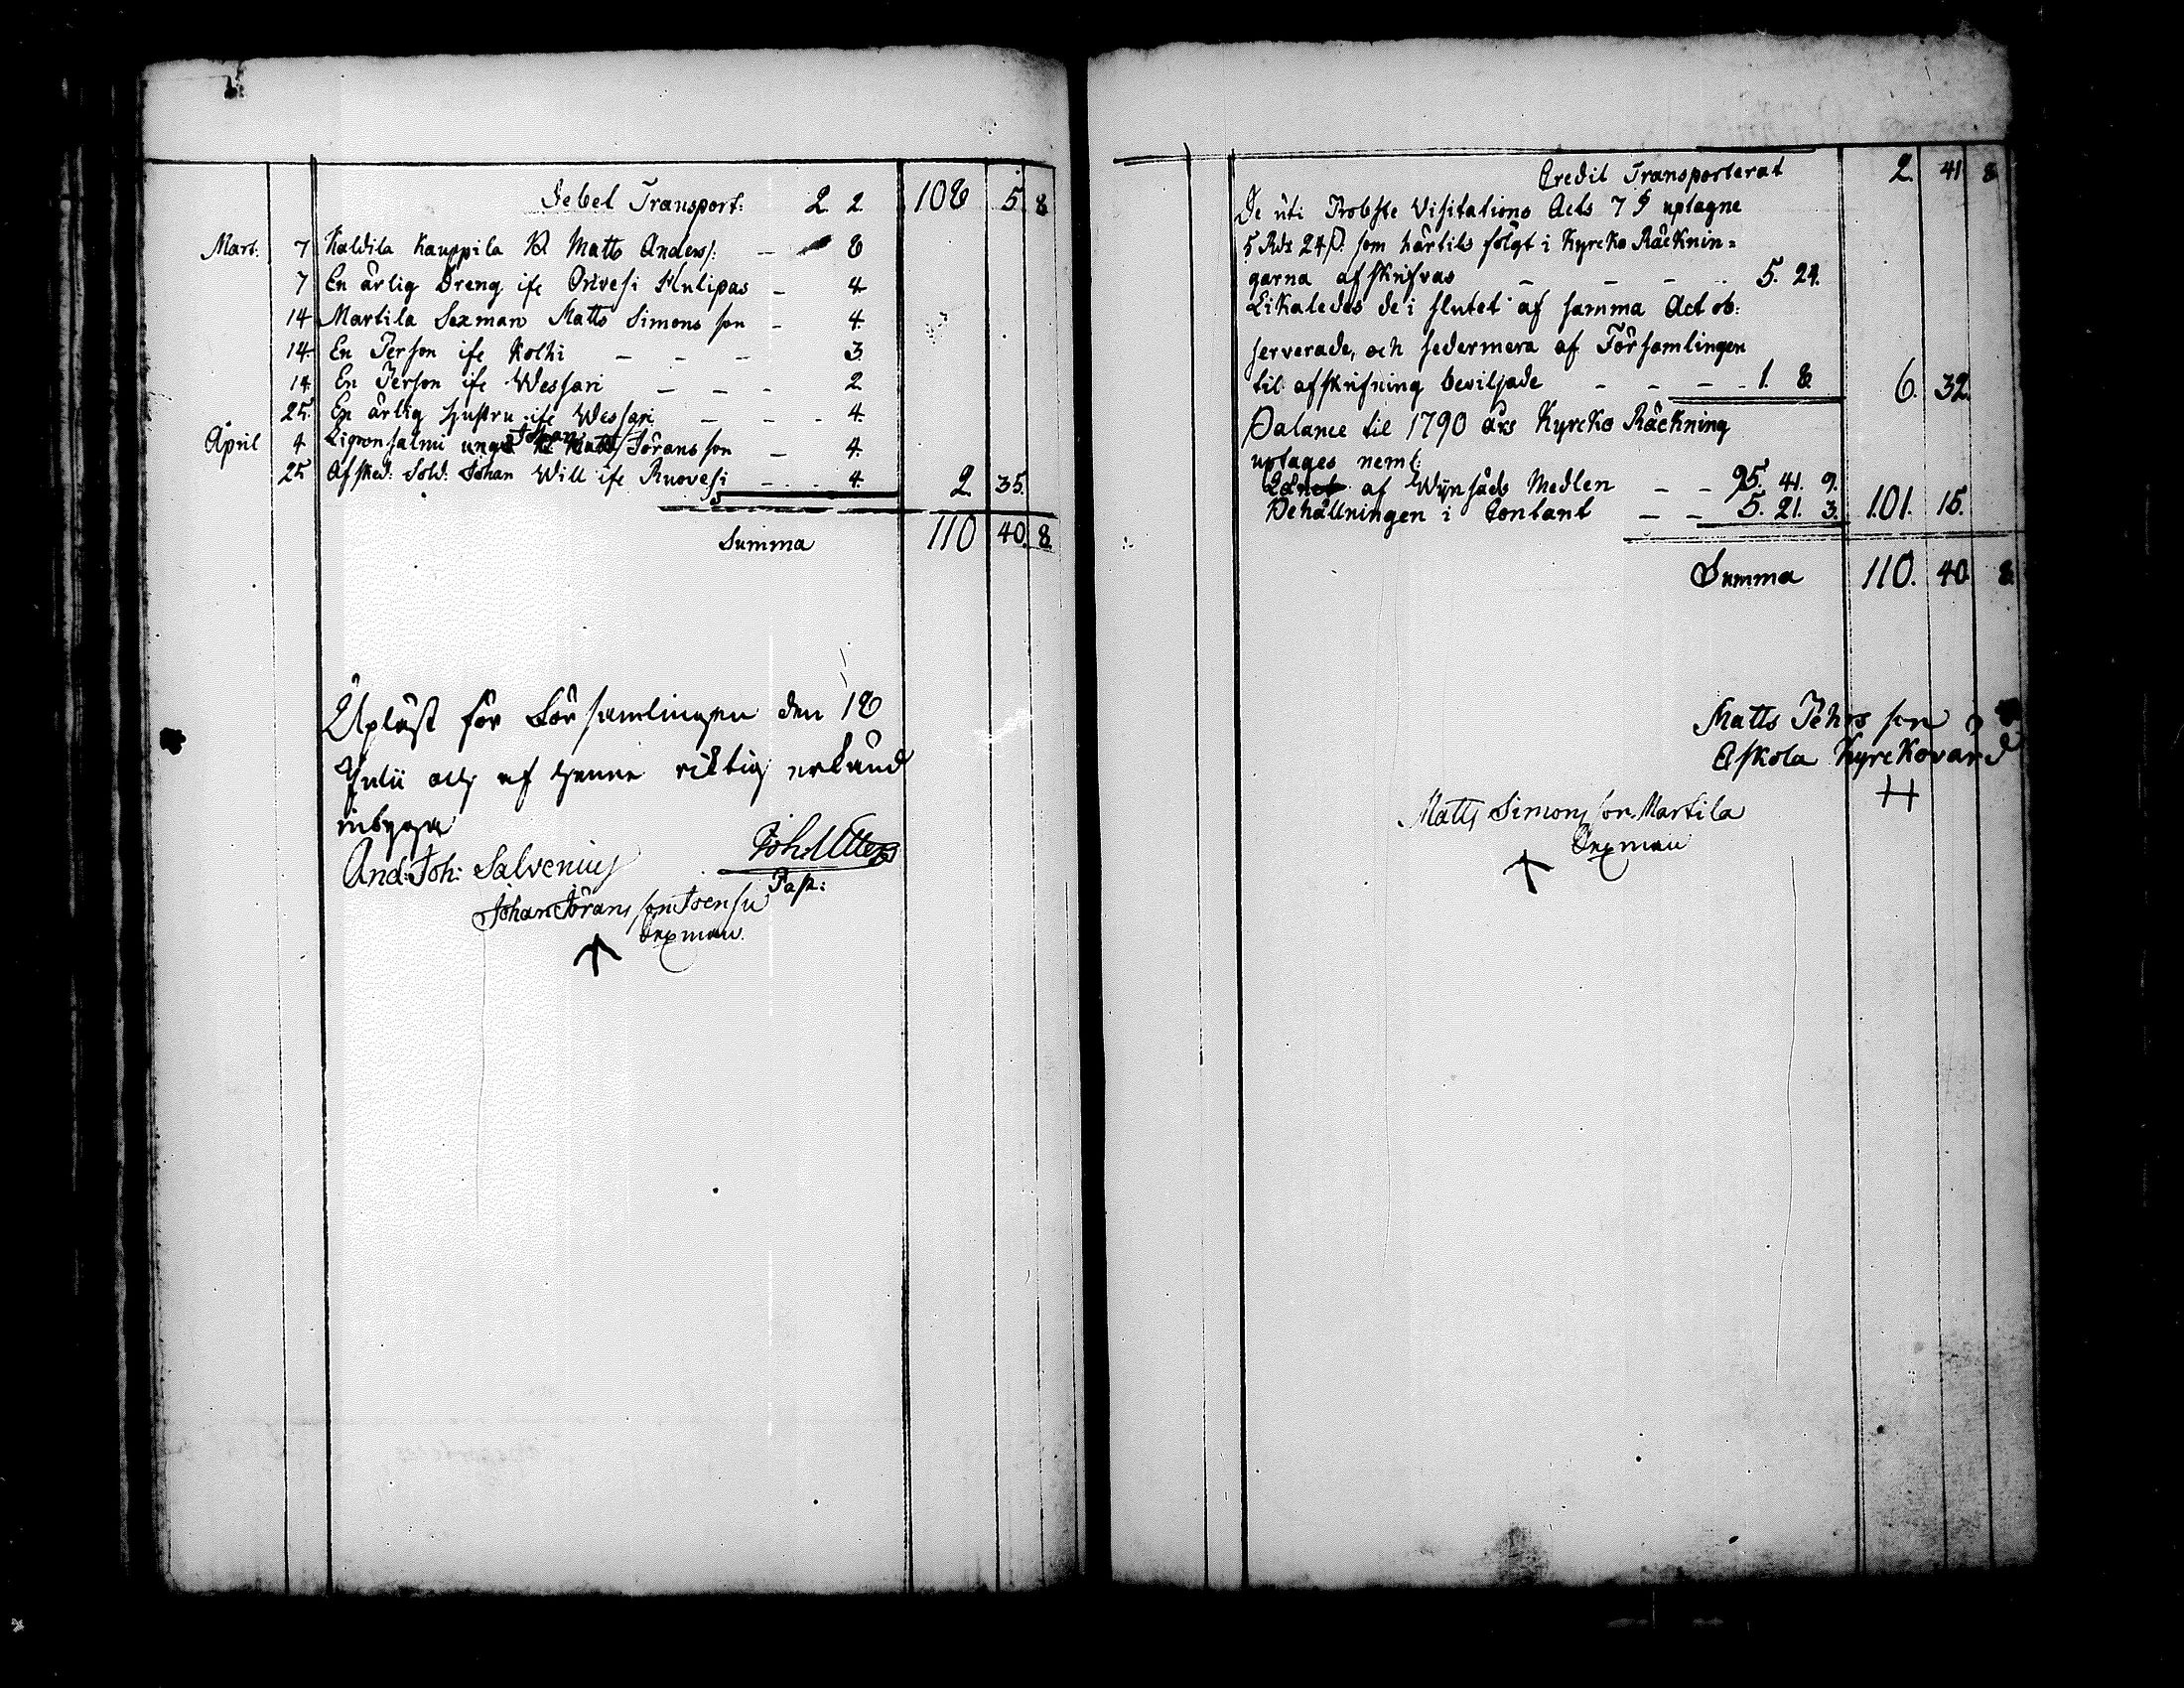 Debet Transport: 2. 2. 108 5. 8
Mart. 7 Kaldila Kauppila Matts Anders: — 8
7 En ärlig Dreng ifr Orivesi — 4
14 Martila Sexman Matts Simons son — 4.
14. En Person ifr Kolhi — — — 3.
14 En Person ifr Wessari — — — 2
25. En ärlig hustru ifr Wessari — — — 4.
April 4 unge Johan Jörans son — 4.
25 Afsked: Sold: Johan Will ifr Ruovesi — 4. 2. 35.
Summa 110 40. 8
Upläst för Församlingen den 18
Julii och af henne riktig erkänd
intygar
And: Joh: Salvenius Joh: Utter
Past:
Johan Jörans son Joensu
Sexman.
Credit Transporterat 2. 41. 8
De uti Probste Visitations Acts 7 § uptagne
5 Rdr 24 ß. som härtils fölgt i Kyrcko Räcknin=
garna afskrifvas — — — 5. 24.
Likaledes de i slutet af samma Act ob:
serverade, och sedermera af Församlingen
til afskrifning beviljade — — — 1. 8. 6. 32.
Balance til 1790 års Kyrcko Räckning
uptages neml:
af Medlen — — 95. 41. 9.
Behållningen i Contant — — 5. 21. 3. 101. 15.
Summa 110. 40. 8.
Matts Pehrs son
Askola Kyrckovärd
Matts Simons son Martila
Sexman